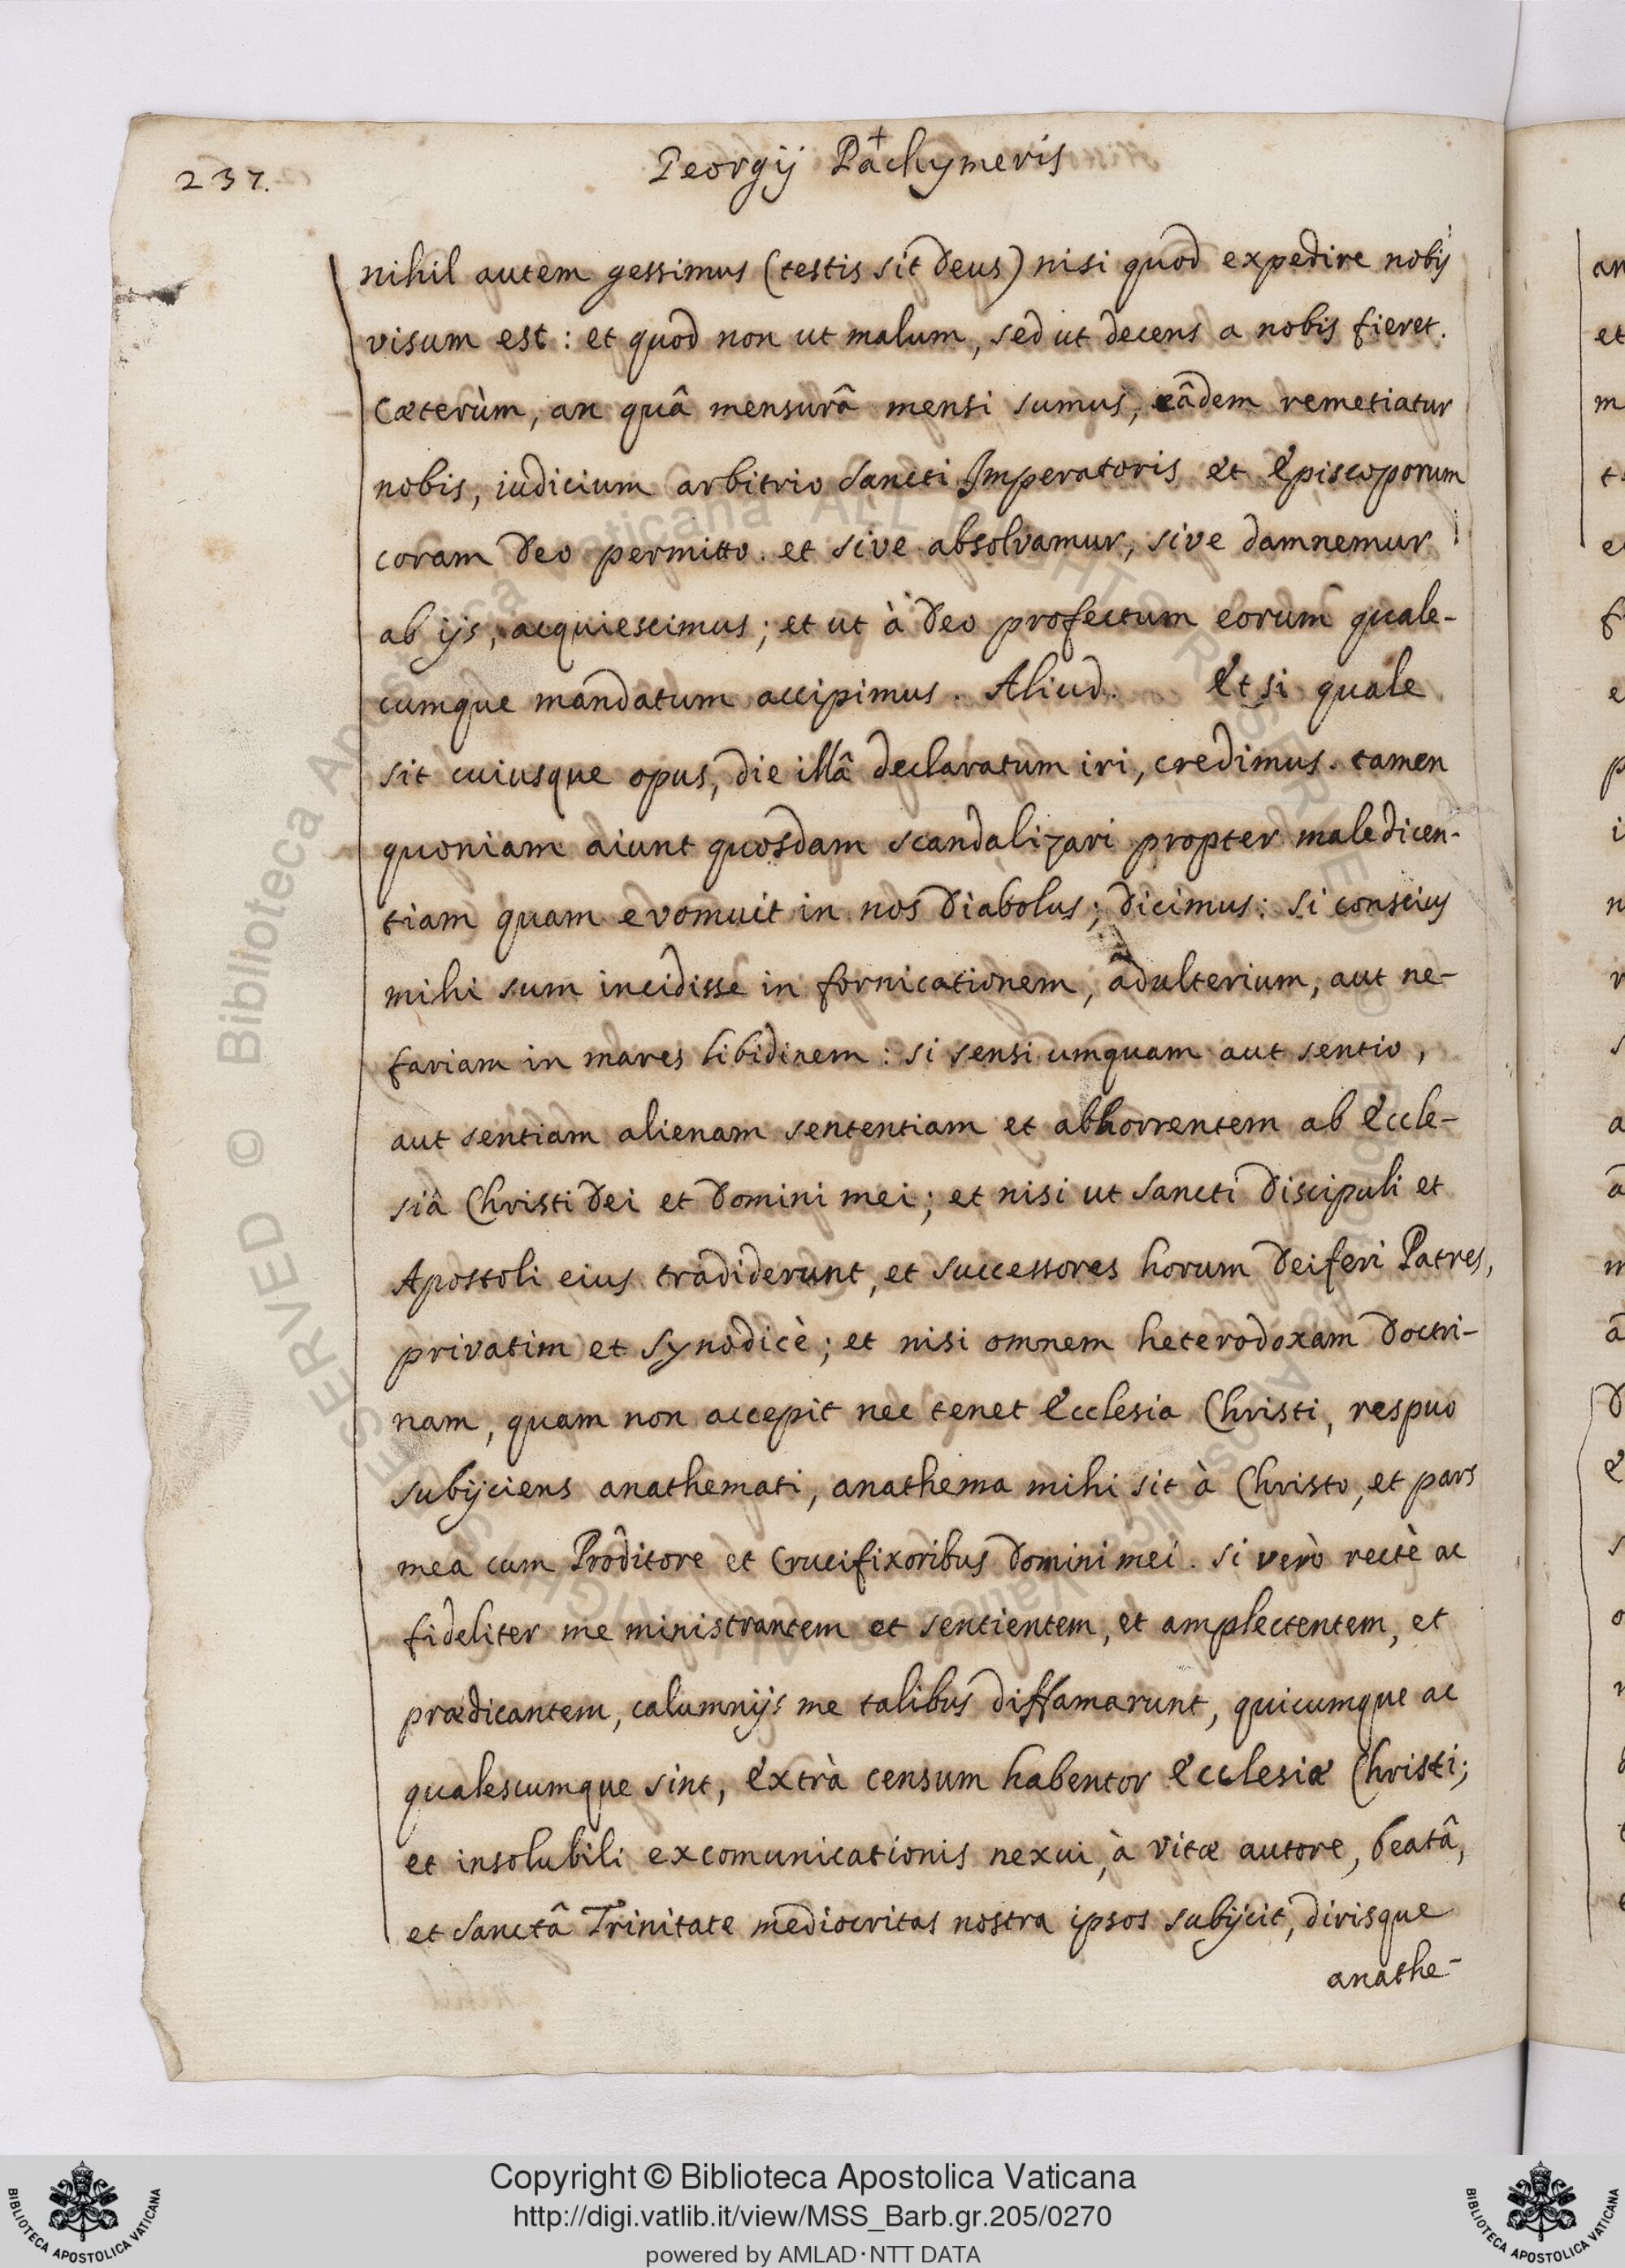 237.
Georgij Pachymeris
nihil autem gessimus (testis sit Deus) nisi quod expedire nobis
visum est: et quod non ut malum, sed ut decens a nobis fieret.
Cæterùm, an quâ mensurâ mensi sumus, eâdem remetiatur
nobis, iudicium arbitrio Sancti Imperatoris et Episcoporum
coram Deo permitto. et sive absolvamur, sive damnemur
ab ijs, acquiescimus; et ut à Deo profectum eorum quale-
cumque mandatum accipimus. Aliud. Et si quale
sit cuiusque opus, die illâ declaratum iri, credimus. tamen
quoniam aiunt quosdam scandalizari propter maledicen-
tiam quam evomuit in nos Diabolus; dicimus: si conscius
mihi sum incidisse in fornicationem, adulterium, aut ne-
fariam in mares libidinem: si sensi umquam aut sentio,
aut sentiam alienam sententiam et abhorrentem ab Eccle-
siâ Christi Dei et Domini mei; et nisi ut Sancti Discipuli et
Apostoli eius tradiderunt, et successores horum Deiferi Patres,
privatim et synodicè; et nisi omnem heterodoxam doctri-
nam, quam non accepit nec tenet Ecclesia Christi, respuo
subijciens anathemati, anathema mihi sit à Christo, et pars
mea cum Proditore et Crucifixoribus Domini mei. Si verò rectè ac
fideliter me ministrantem et sentientem, et amplectentem, et
prædicantem, calumnijs me talibus diffamarunt, quicumque ac
qualescumque sint, extrà censum habentor Ecclesiæ Christi;
et insolubili excomunicationis nexui, à vitæ autore, beatâ,
et Sanctâ Trinitate mediocritas nostra ipsos subijcit, dirisque
anathe-
Copyright © Biblioteca Apostolica Vaticana
http://digi.vatlib.it/view/MSS_Barb.gr.205/0270
powered by AMLAD·NTT DATA